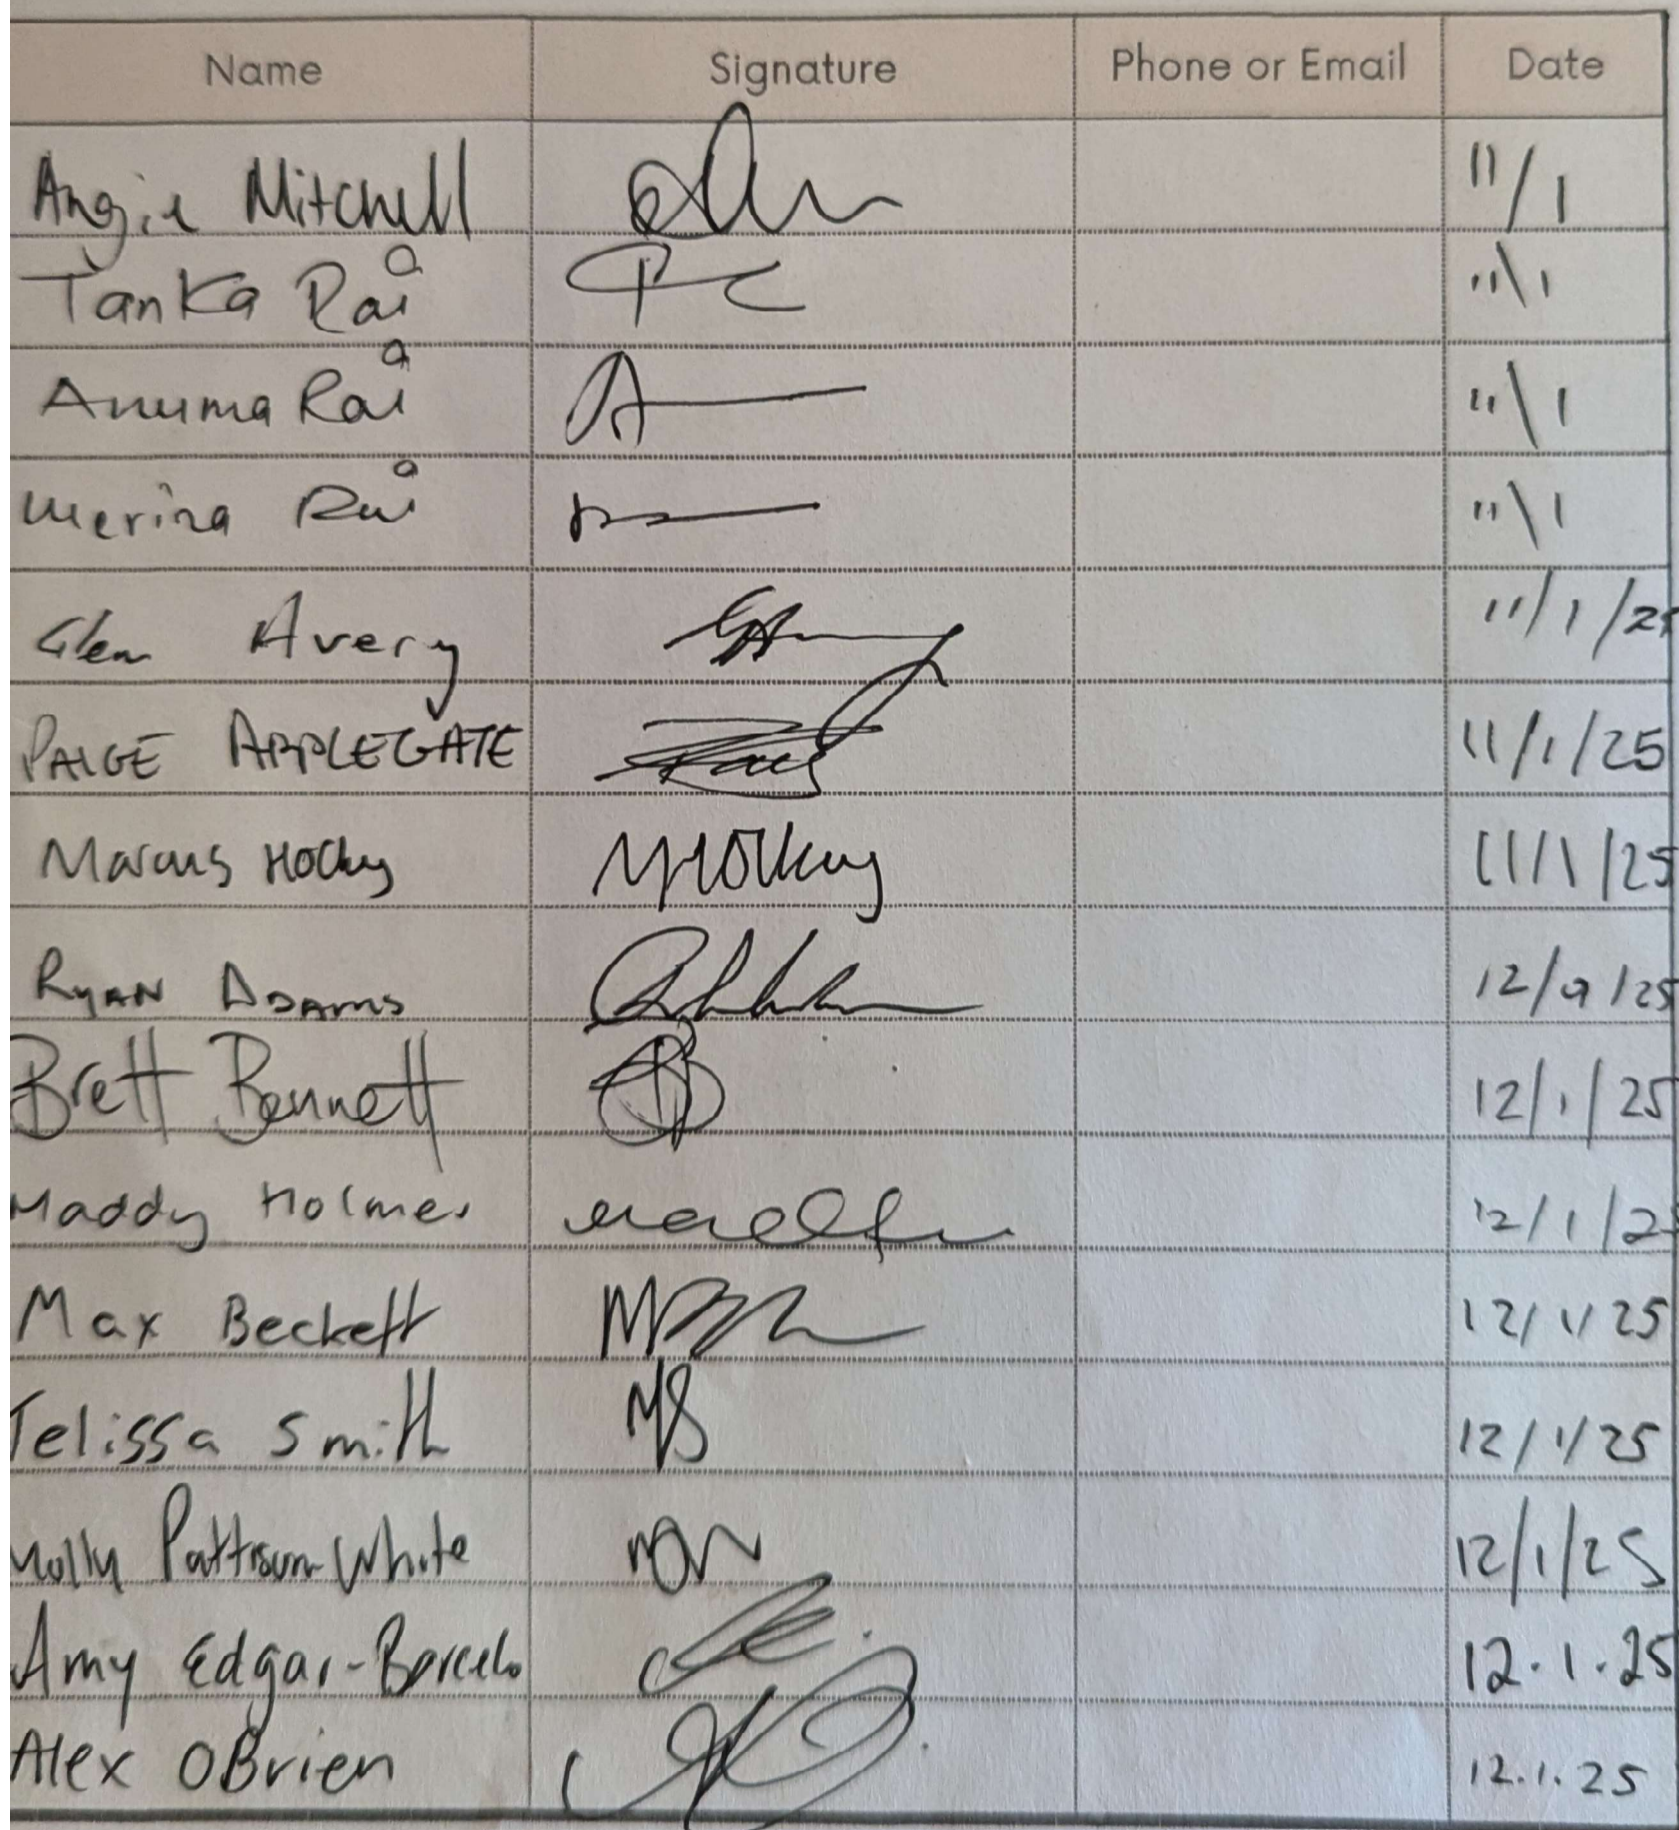 Name Signature Phone or Email Date
Angie Mitchell 11/1
Tanka Rai 11\1
Anuma Rai 11\1
Merina Rai 11\1
Glen Avery 11/1/2
PAIGE APPLEGATE 11/1/25
Marcus 11/1/25
RYAN ADAMS 12/ /25
Brett Bennett 12/1/25
Maddy Holmes 12/1/2
Max Beckett 12/1/25
elissa Smith 12/1/25
Molly Pattison White 12/1/25
Amy Edgar-Barcelo 12.1.25
Alex OBrien 12.1.25